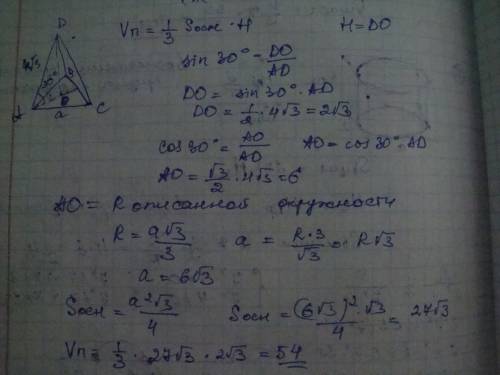 Vп = 1/3 Sосн · H    H = DO
D
4√3
30°
B
O
A    a    C
sin 30° = DO/AD
DO = sin 30° · AD
DO = 1/2 · 4√3 = 2√3
cos 30° = AO/AD    AO = cos 30° · AD
AO = √3/2 · 4√3 = 6
AO = R описанной окружности
R = a√3/3    a = R·3/√3 = R√3
a = 6√3
Sосн = a²√3/4    Sосн = (6√3)²·√3/4 = 27√3
Vп = 1/3 · 27√3 · 2√3 = 54